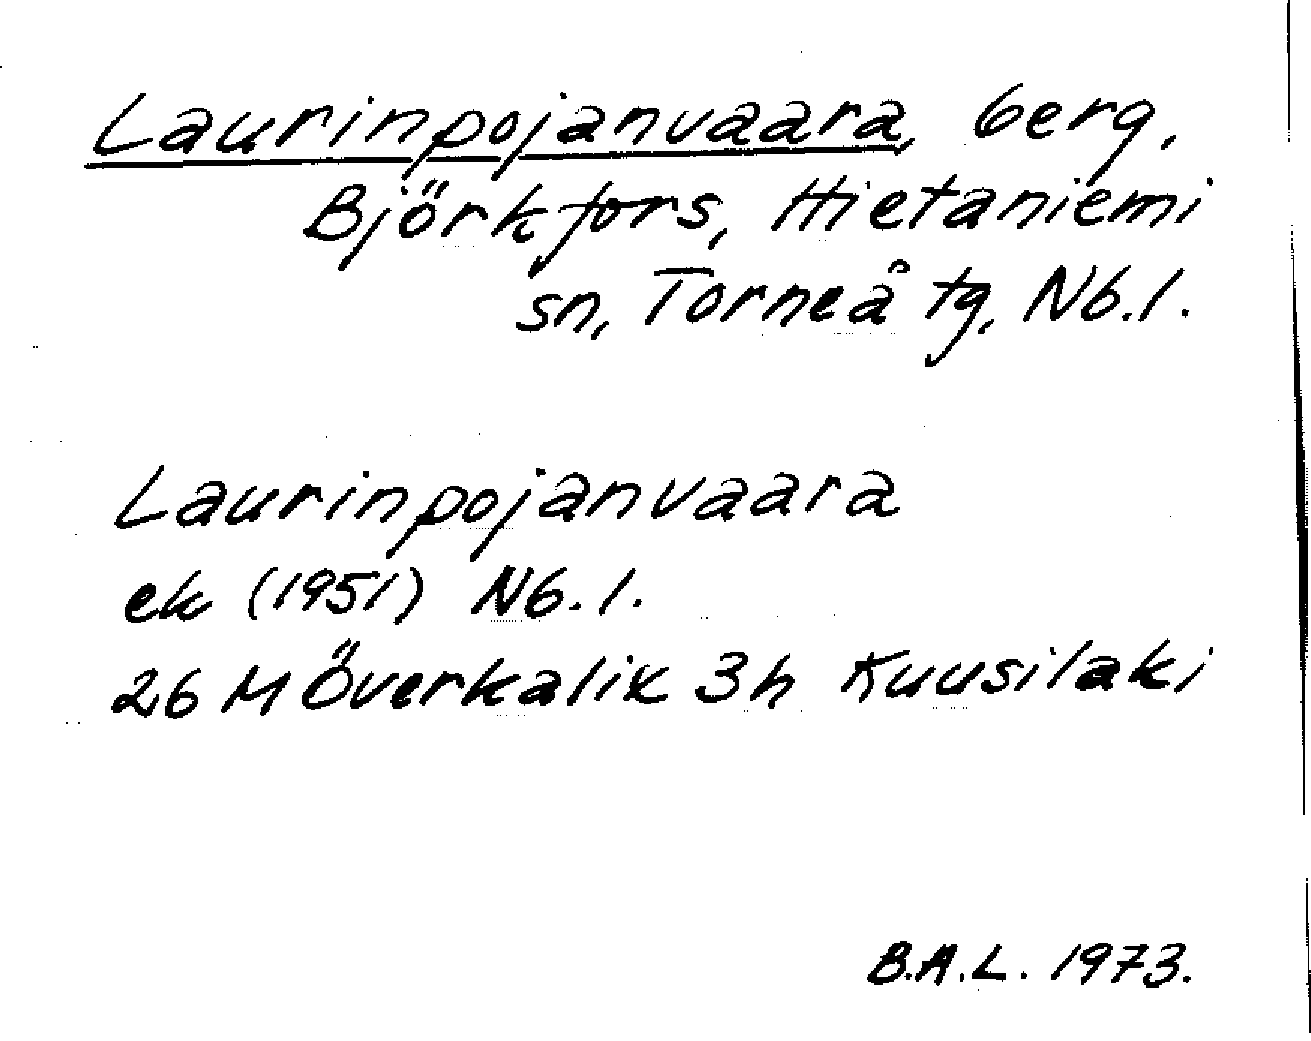 Laurinpojanvaara, berg,
Björkfors, Hietaniemi
sn, Torneå tg, Nb.l.
Laurinpojanvaara
ek (1951) Nb.l.
26 M Överkalix 3h Kuusilaki
B.A.L. 1973.